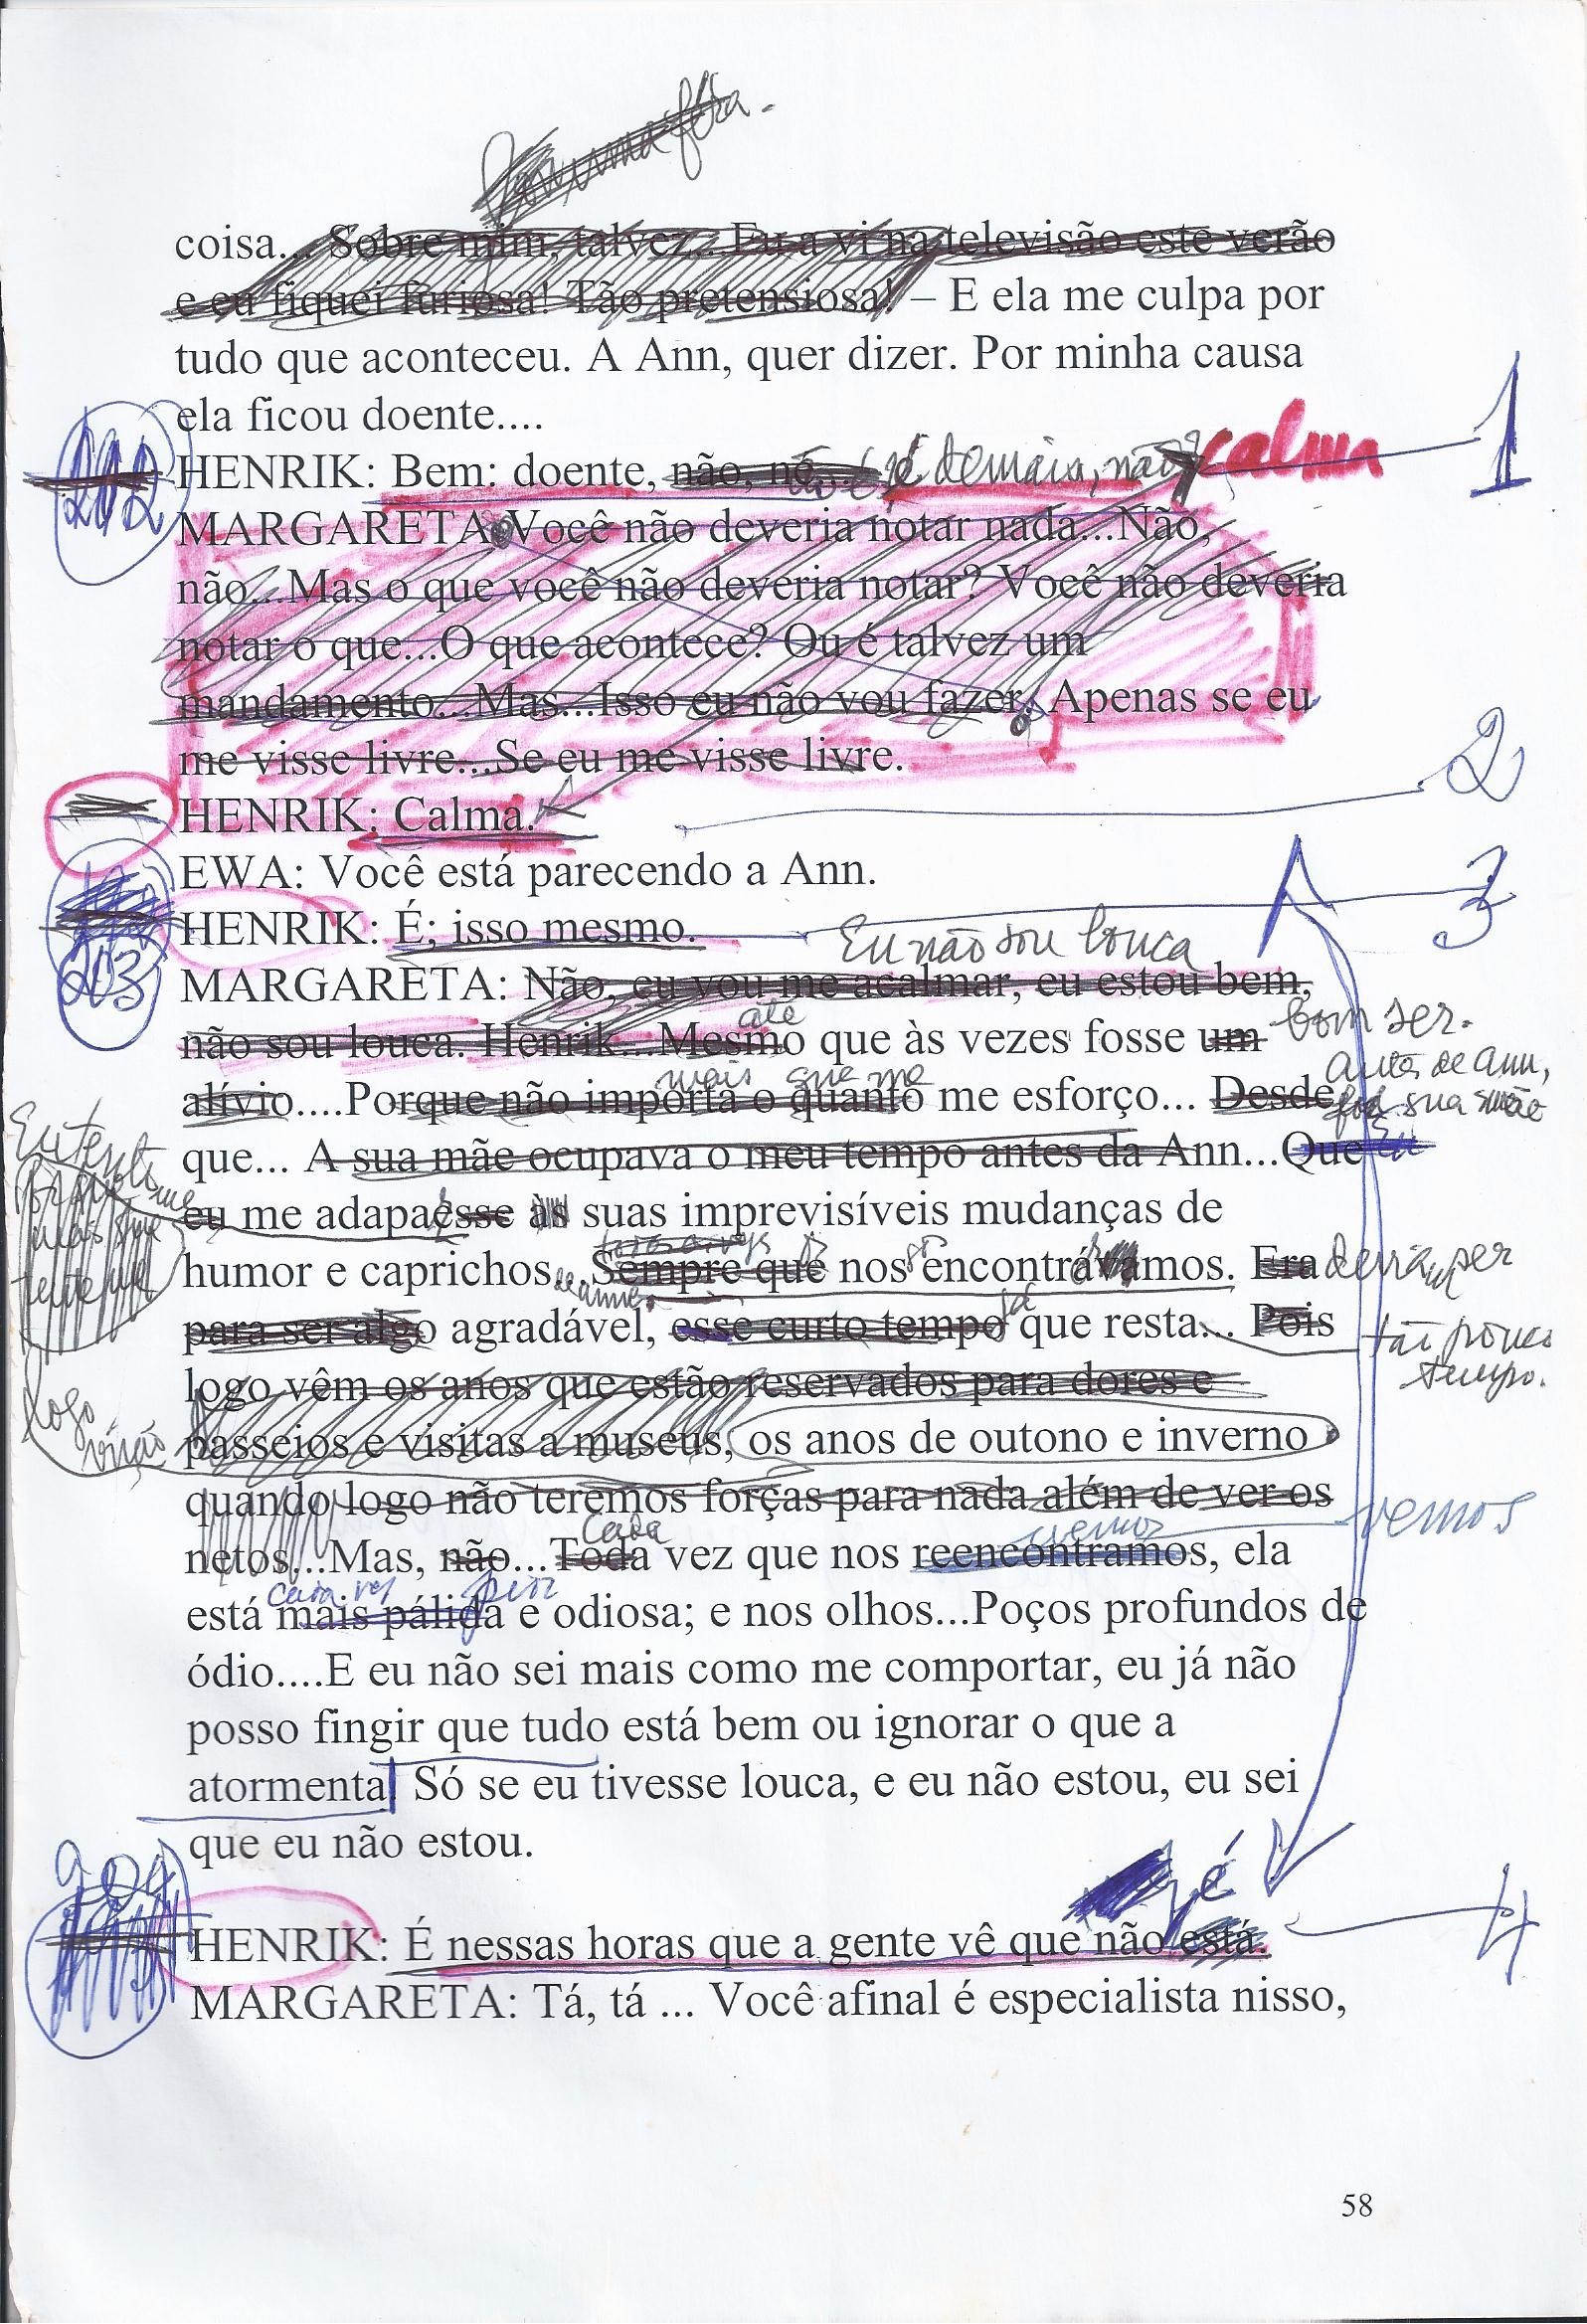 coisa... Sobre mim, talvez...Eu a vi na televisão este verão
e eu fiquei furiosa! Tão pretensiosa! – E ela me culpa por
tudo que aconteceu. A Ann, quer dizer. Por minha causa
ela ficou doente....
202
HENRIK: Bem: doente, não, né... é demais, não? calma
1
MARGARETA: Você não deveria notar nada...Não,
não...Mas o que você não deveria notar? Você não deveria
notar o que...O que acontece? Ou é talvez um
mandamento...Mas...Isso eu não vou fazer. Apenas se eu
me visse livre...Se eu me visse livre.
2
HENRIK: Calma.
EWA: Você está parecendo a Ann.
3
HENRIK: É; isso mesmo.
203
Eu não sou louca
MARGARETA: Não, eu vou me acalmar, eu estou bem,
até
não sou louca. Henrik...Mesmo que às vezes fosse um bom ser.
mais que me
antes de Ann,
alívio....Porque não importa o quanto me esforço... Desde
foi sua mãe
que... A sua mãe ocupava o meu tempo antes da Ann...Que Eu
eu me adapaesse às suas imprevisíveis mudanças de
humor e caprichos...Sempre que nos encontrávamos. Era deveria ser
já
para ser algo agradável, esse curto tempo que resta... Pois
tão pouco
tempo.
logo vêm os anos que estão reservados para dores e
logo
virão
passeios e visitas a museus, os anos de outono e inverno
quando logo não teremos forças para nada além de ver os
Cada
vemos
vemos
netos...Mas, não...Toda vez que nos reencontramos, ela
cada vez pior
está mais pálida e odiosa; e nos olhos...Poços profundos de
ódio....E eu não sei mais como me comportar, eu já não
posso fingir que tudo está bem ou ignorar o que a
atormenta. Só se eu tivesse louca, e eu não estou, eu sei
que eu não estou.
204
é
4
HENRIK: É nessas horas que a gente vê que não está.
MARGARETA: Tá, tá ... Você afinal é especialista nisso,
58